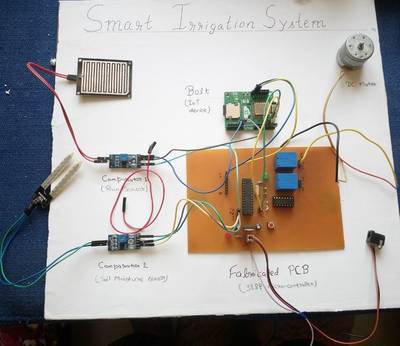 Smart Irrigation System
Bolt
(IoT
device)
DC Motor
Comparator 1
(Rain Sensor)
Comparator 2
(Soil Moisture Sensor)
Fabricated PCB